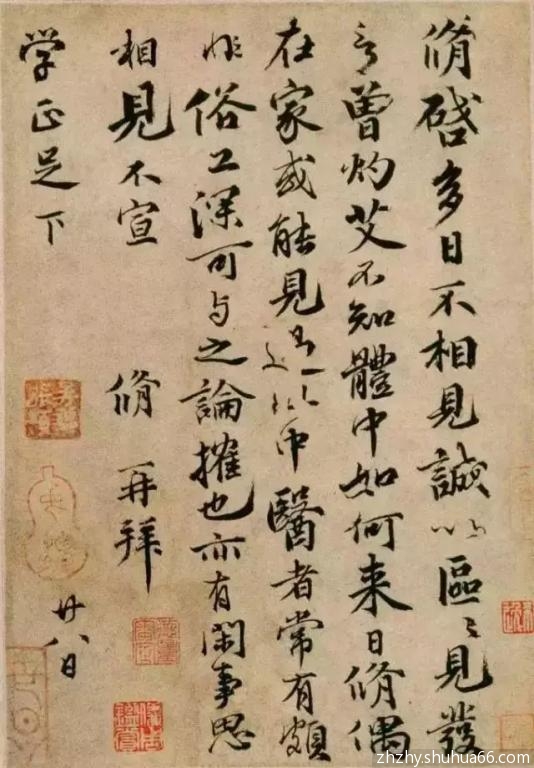 脩啓多日不相見誠以區〻見發
言曾灼艾不知體中如何来日脩偶
在家或能見過此中醫者常有頗
非俗工深可与之論搉也亦有閑事思
相見不宣
脩再拜
廿八日
学正足下
zhzhy.shuhua66.com